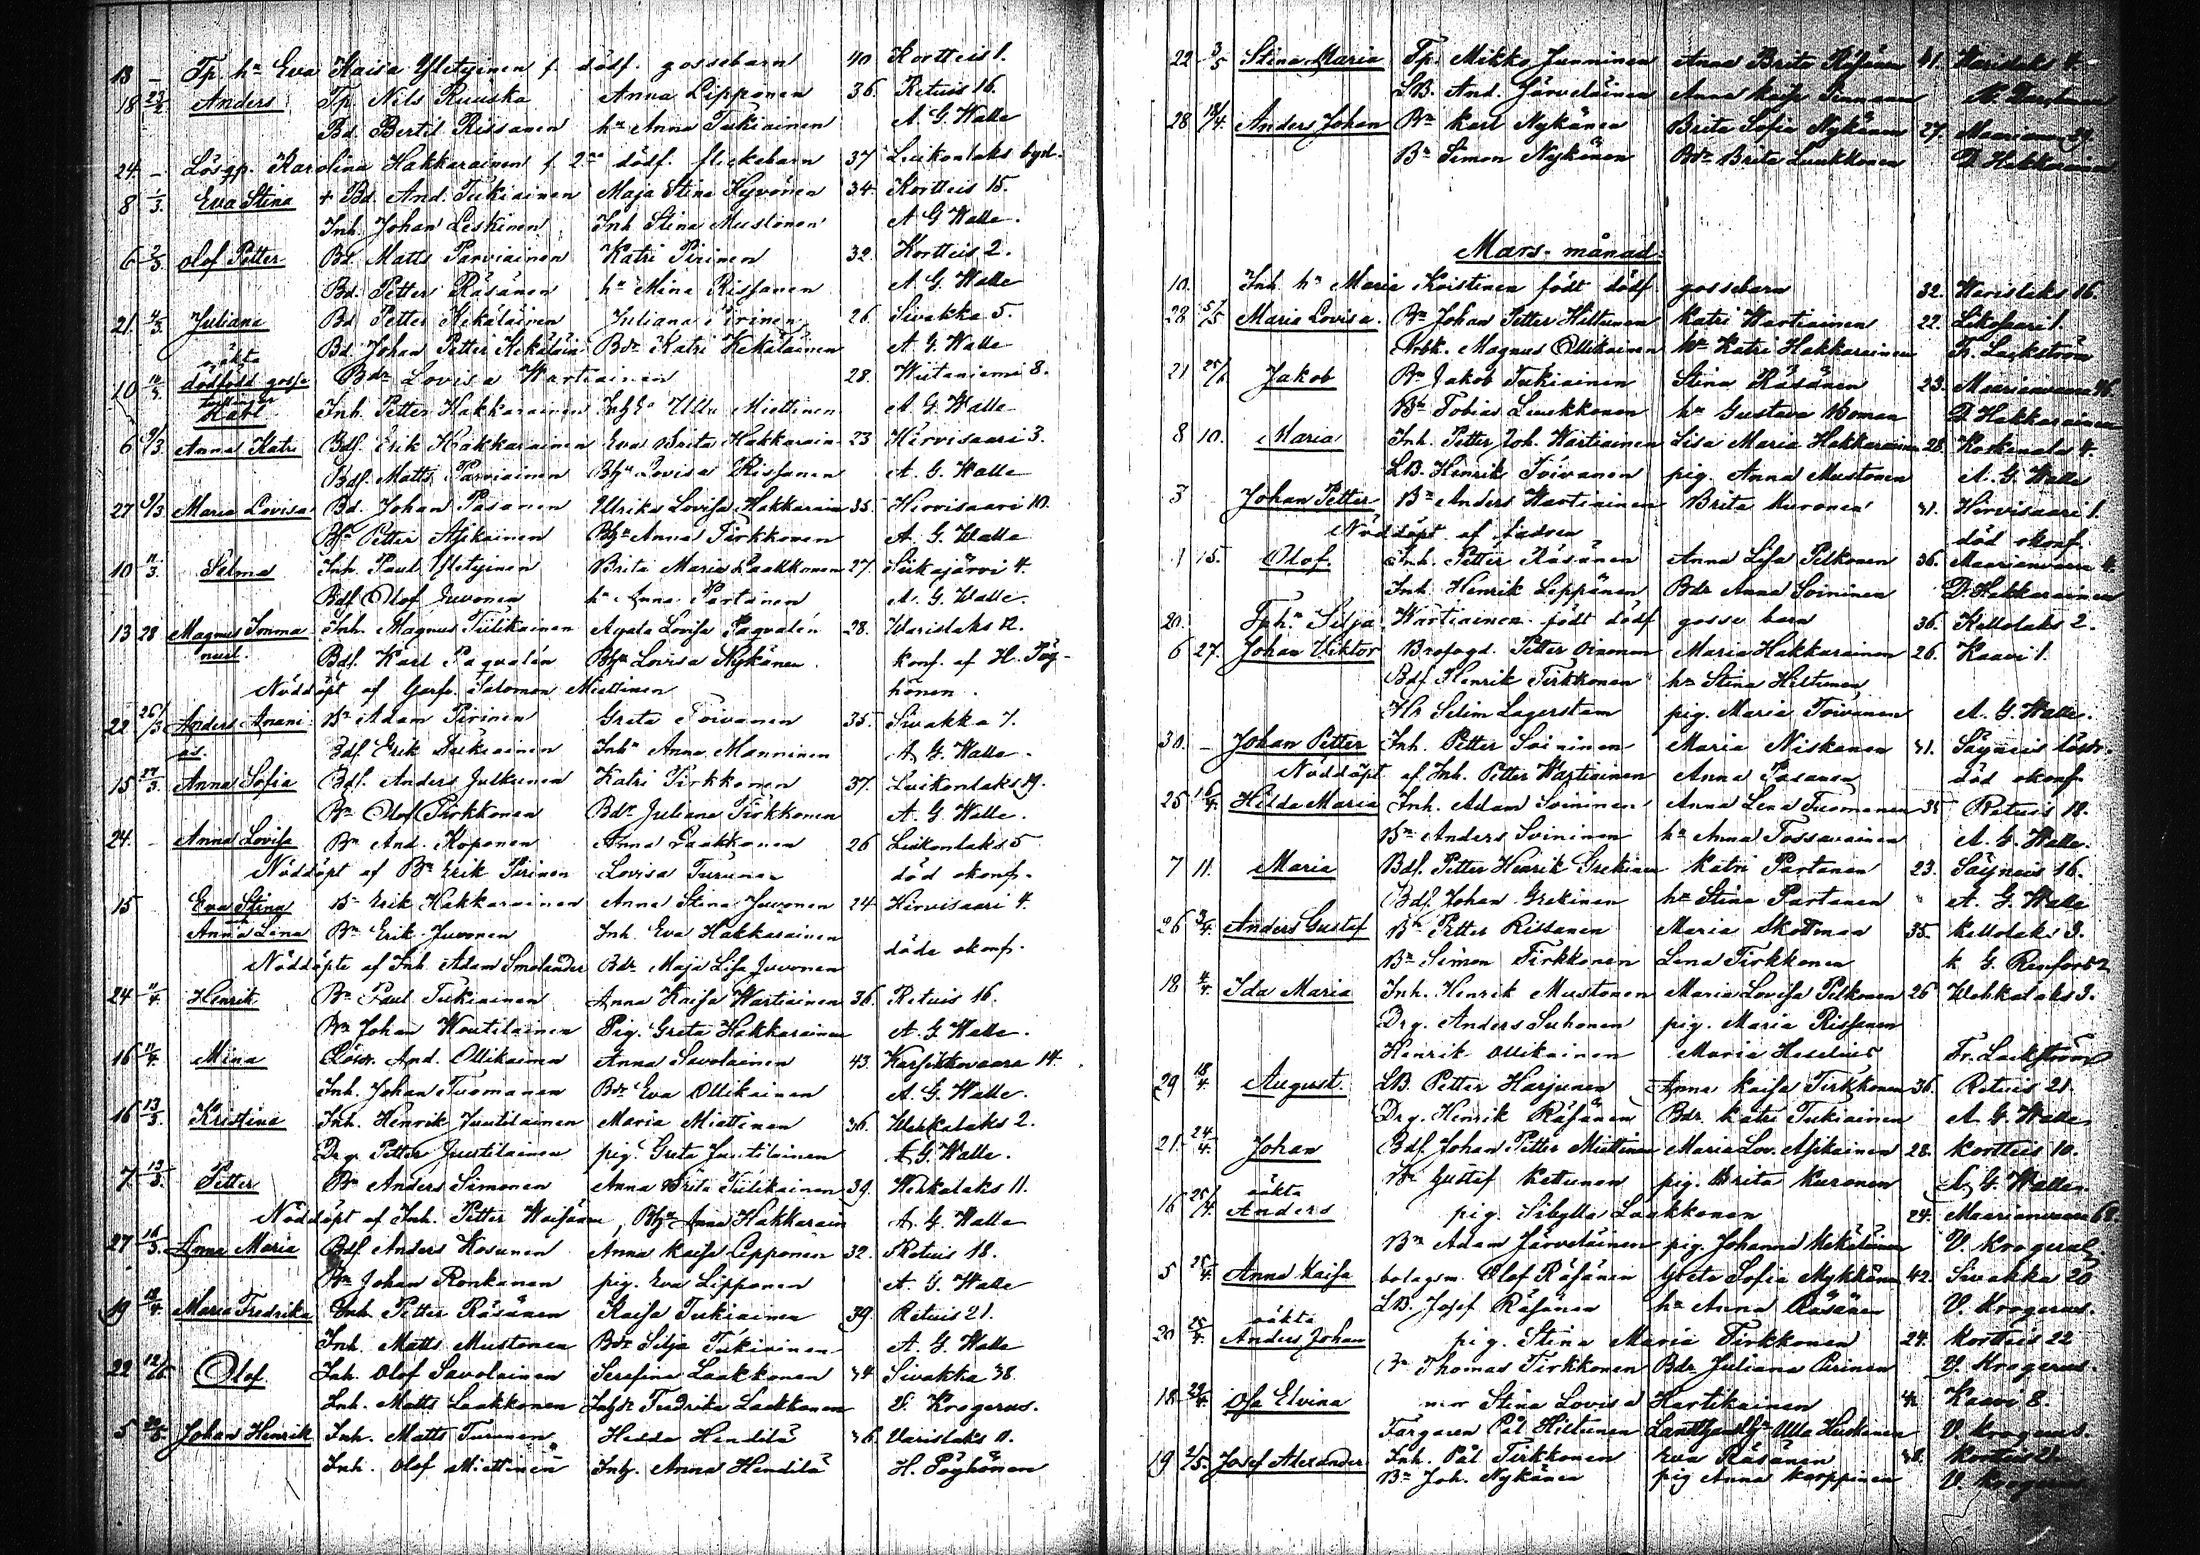 13 – Tp. hu Eva Kaisa Yletyinen f. dödf. gossebarn 40 Kortteis 1.
18 23/2 Anders Tp. Nils Ruuska Anna Lipponen 36. Retuis 16.
Bd. Bertil Rissanen hu Anna Tukiainen A. G. Walle
24 – Lösgp. Karolina Hakkarainen f. 2ne dödf. flickebarn 37 Luikonlaks byd.
8 1/3. Eva Stina + Bd. And. Tukiainen Maja Stina Hyvönen 34. Kortteis 15.
Inh. Johan Leskinen Inh. Stina Mustonen A G Walle.
6 2/3 Olof Petter Bd. Matts Parviainen Katri Pirinen 32. Kortteis 2.
Bd. Petter Räsänen hu Mina Rissanen A G Walle
21. 4/3 Juliana Bd Petter Kekäläinen Juliana Pirinen 26. Sivakka 5.
Bd. Johan Petter Kekäläin Bdr Katri Kekäläinen A. G. Walle
oäkta
10 dödfödd gosse Bdr Lovisa Wartiainen 28. Wiitaniemi 8.
tvillingar
Habl Inh. Petter Hakkarainen Ulla Miettinen A. G. Walle
6 9/3 Anna Katri Bdf. Erik Hakkarainen Eva Brita Hakkarain 23 Hirvisaari 3.
Bdf. Matts Parviainen Bhu Lovisa Rissanen A. G. Walle
27 9/3 Maria Lovisa Bd. Johan Pasanen Ulrika Lovisa Hakkarain 35. Hirvisaari 10.
Petter Asikainen Anna Tirkkonen A. G. Walle
10 11/3. Selma Inh. Paul Yletyinen Brita Maria Laakkonen 27. Siikajärvi 4.
Bdf. Olof Juvonen hu Anna Partanen A. G. Walle.
13 28 Magnus Imma Inh. Magnus Tiilikainen Agata Lovisa Pagvalén 28. Varislaks 12.
nuel. Bdf. Karl Pagvalén Lovisa Nykänen konf. af H. Pöy-
Nöddöpt af Salomon Miettinen hönen.
22 26/3 Anders Anani Bn Adam Pirinen Greta Toivanen 35. Sivakka 7.
as. Bdf. Erik Tukiainen Inhu Anna Manninen A. G. Walle.
15 27/3. Anna Sofia Bdf. Anders Julkunen Katri Tirkkonen 37. Luikonlaks 19.
Bn Olof Tirkkonen Bdr Juliana Tirkkonen A. G. Walle.
24. – Anna Lovisa Bn And. Koponen Anna Laakkonen 26 Luikonlaks 5
Nöddöpt af Bn Erik Pirinen Lovisa Turunen död okonf.
15 Eva Stina Bn Erik Hakkarainen Anna Stina Juvonen 24 Hirvisaari 4.
Anna Lena Bn Erik Juvonen Inh. Eva Hakkarainen
Nöddöpte af Inh. Adam Smolander Bdr Maja Lisa Juvonen döde okonf.
24 11/4. Henrik Bn Paul Tukiainen Anna Kaisa Wartiainen 36. Retuis 16.
Bn Johan Woutilainen Pig. Greta Hakkarainen A. G. Walle.
16 11/4. Mina And. Ollikainen Anna Savolainen 43. Karsikkovaara 14.
Inh. Johan Tuomanen Bdr Eva Ollikainen A. G. Walle.
16 13/3. Kristina Inh. Henrik Juutilainen Maria Miettinen 36. Wehkalaks 2.
Drg. Petter Juutilainen pig. Greta Juutilainen A G. Walle.
7 13/3. Petter Bn Anders Simonen Anna Brita Tiilikainen 39. Wehkalaks 11.
Nöddöpt af Inh. Petter Anna Hakkarain A. G. Walle
27 16/3. Anna Maria Bdf. Anders Kosunen Anna Kaisa Lipponen 32. Retuis 18.
Bn Johan Ronkanen pig. Eva Lipponen A. G. Walle
19 Maria Fredrika Inh. Petter Räsänen Kaisa Tukiainen 39. Retuis 21.
Inh. Matts Mustonen Bdr Silja Tukiainen A. G. Walle
22 Olof. Inh. Olof Savolainen Serafina Laakkonen 34 Sivakka 38.
Inh. Matts Laakkonen Fredrika Laakkonen V. Krogerus.
5 Johan Henrik Inh. Matts Turunen Hedda Hendilä 36. Varislaks 11.
Inh. Olof Miettinen Anna Hendilä H. Pöyhönen
22 3/5 Stina Maria Tp. Mikko Junninen Anna Brita Räsänen 41. Varislaks 4
LB. And. Järveläinen Anna Kaisa
28 Anders Johan Bn Karl Nykänen Brita Sofia Nykänen 27. Maarianvaara 29.
Bn Simon Nykänen Bdr Brita Luukkonen D Hakkarainen
Mars-månad.
10. Inh. hu Maria Koistinen födt dödf gossebarn 32. Varislaks 16.
28 Maria Lovisa. Bn Johan Petter Hiltunen Katri Wartiainen 22. Likopari 1.
Magnus Ollikainen Katri Hakkarainen Fr. Lackström
21 Jakob Bn Jakob Tukiainen Stina Räsänen 23. Maarianvaara 16.
Bn Tobias Luukkonen hu Gustava Woman D. Hakkarainen
8 10. Maria Inh. Petter Joh. Wartiainen Lisa Maria Hakkarainen 28. 4.
LB. Henrik Toivanen pig. Anna Mustonen A. G. Walle
3 Johan Petter Bn Anders Wartiainen Brita Kuronen 41. Hirvisaari 1.
Nöddöpt af fadren död okonf.
1 15. Olof. Inh. Petter Räsänen Anna Lisa Pelkonen 36. Maarianvaara 4.
Inh. Henrik Leppänen Bdr Anna Soininen D. Hakkarainen
20. Tphu Silja Wartiainen födt dödf gosse barn 36. Kellolaks 2.
6 27. Johan Viktor Brofogd. Petter Oinonen Maria Hakkarainen 26. Kaavi 1.
Bdf. Henrik Tirkkonen hu Stina Hiltunen
Selim Lagerstam pig. Maria Toivanen A. G. Walle.
30. – Johan Petter Inh. Petter Soininen Maria Niskanen 41. Säyneis
Nöddöpt af Inh. Petter Wartiainen Anna Pasanen död okonf.
25 16/4. Hilda Maria Inh. Adam Soininen Anna Lena Tuomanen 35 Retuis 18.
Bn Anders Soininen hu Anna Tossavainen A. G. Walle.
7 11. Maria Bdf. Petter Henrik Grekinen Katri Partanen 23. Säyneis 16.
Bdf. Johan Grekinen hu Stina Partanen A. G. Walle
26 3/4. Anders Gustaf Bn Petter Rissanen Maria Skottman 35. Kellolaks 3.
Bn Simon Tirkkonen Lena Tirkkonen K G. Renfors
18 4/4. Ida Maria Inh. Henrik Mustonen Maria Lovisa Pelkonen 26 Wehkalaks 3.
Drg. Anders Suhonen pig. Maria Rissanen
Henrik Ollikainen Maria Heselius Fr. Lackström
29 18/4 August. LB. Petter Harjunen Anna Kaisa Tirkkonen 36. Retuis 21.
Drg. Henrik Räsänen Bdr Katri Tukiainen A. G. Walle
21. 24/4. Johan Bdf. Johan Petter Miettinen Maria Lov. Asikainen 28. Kortteis 10.
Bn Gustaf Ketunen pig. Brita Kuronen A. G. Walle.
oäkta
16 25/4 Anders pig. Sibylla Laakkonen 24. Maarianvaara 68.
Bn Adam Järveläinen pig. Johanna Kekäläinen V. Krogerus.
5 25/4. Anna Kaisa bolagsm. Olof Räsänen Greta Sofia Mykkänen 42. Sivakka 20
LB. Josef Räsänen hu Anna Räsänen V. Krogerus.
oäkta
20 25/4. Anders Johan pig. Stina Maria Tirkkonen 24. Kortteis 22
Bn Thomas Tirkkonen Bdr Juliana Pirinen V. Krogerus.
18 29/4. Elvina Stina Lovisa Hartikainen Kaavi 8.
Färgaren Pål Hiltunen Ulla Huskonen V. Krogerus.
19 2/5. Josef Alexander Inh. Pål Tirkkonen Eva Räsänen 38. Kortteis 21.
Bn Joh. Nykänen pig Anna Korppinen V. Krogerus